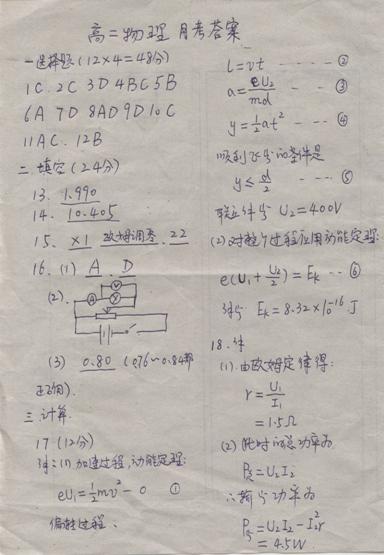 高二物理 月考答案
一.选择题(12×4=48分)
1C. 2C 3D 4BC 5B
6A 7D 8AD 9D 10C
11AC. 12B
二.填空(24分)
13. 1.990
14. 10.405
15. ×1 欧姆调零. 22
16. (1) A . D
(2).
A V
(3) 0.80 (0.76~0.84都
正确).
三.计算.
17 (12分)
解:(1)加速过程,动能定理:
eU₁=½mv²-0 ①
偏转过程、
l=vt ---- ②
a=eU₂/md --- ③
y=½at² --- ④
顺利飞出的条件是
y≤d/2 ---- ⑤
联立解得 U₂=400V
(2)对整个过程应用动能定理:
e(U₁+U₂/2)=Eₖ -- ⑥
解得 Eₖ=8.32×10⁻¹⁶J
18.解
(1).由欧姆定律得:
r=U₁/I₁
=1.5Ω
(2)此时的总功率为
P总=U₂I₂
∴输出功率为
P出=U₂I₂-I₂²r
=4.5W